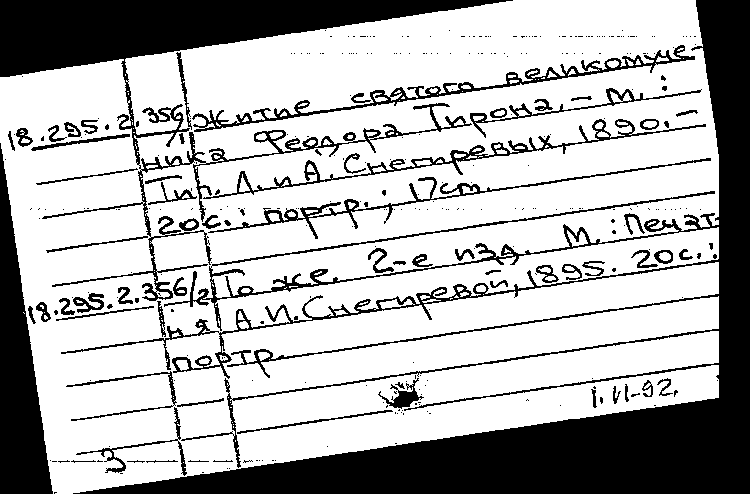 18.295.2.356/1 Житие святого великомуче-
ника Феодора Тирона. – М. :
Тип. Л. и А. Снегиревых, 1890. –
20с. : портр. ; 17cm.
18.295.2.356/2 То же. 2-е изд. М. : Печат-
ня А.И. Снегиревой, 1895. 20с. :
портр.
1.VI-92.
3